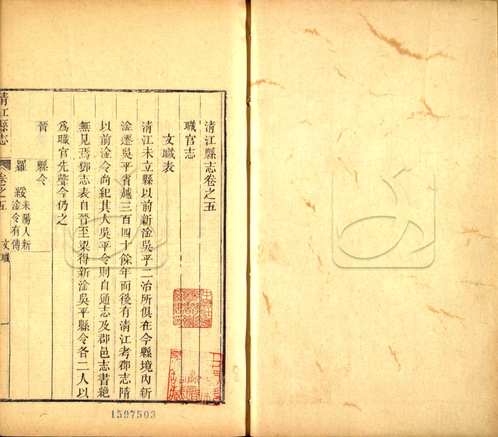 清江縣志卷之五
職官志
文職表
清江未立縣以前新淦吳平二治所俱在今縣境內新
淦遷吳平省越三百四十餘年而後有清江考郡志隋
以前淦令尚紀其人吳平令則自通志及郡邑志書絕
無見焉鄧志表自晉至梁得新淦吳平縣令各二人以
為職官先聲今仍之
縣令
晉
羅
耒陽人新
淦令有傳
清江縣志
卷之五
文職
一
1597503